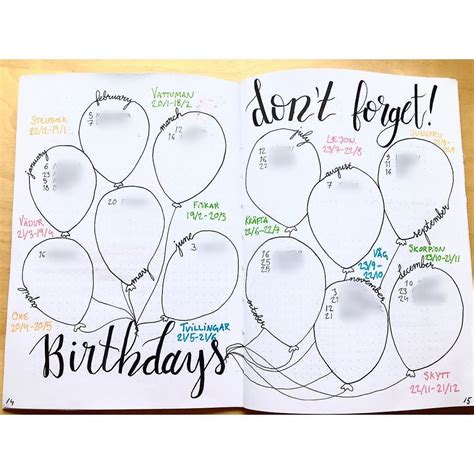 Birthdays
STENBOCK
22/12-19/1
VATTUMAN
20/1-18/2
february
5
7
march
12
january
6
23
5
18
VÄDUR
21/3-19/4
may
20
FISKAR
19/2-20/3
april
16
OXE
20/4-20/5
june
3
TVILLINGAR
21/5-21/6
14
don't forget!
july
12
16
LEJON
23/7-22/8
august
7
JUNGFRU
september
9
11
16
KRÄFTA
22/6-22/7
october
16
25
25
VÅG
23/9-
22/10
SKORPION
23/10-21/11
november
3
12
21
december
10
3
SKYTT
22/11-21/12
15